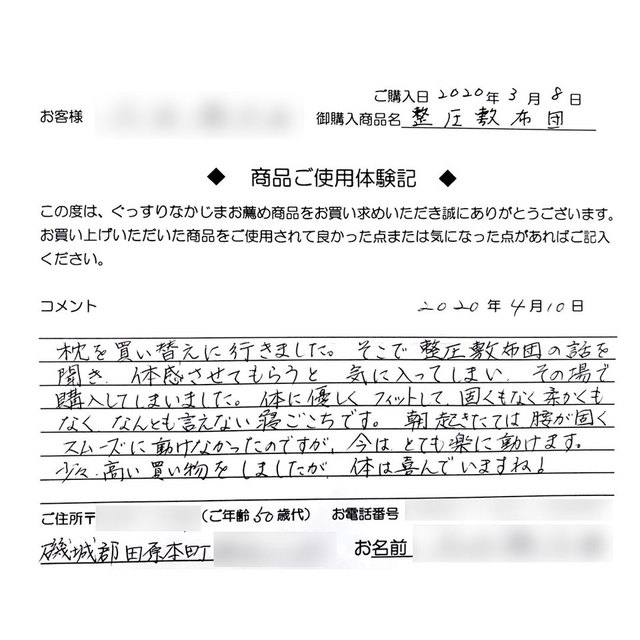 ご購入日 2020年3月8日
お客様
御購入商品名 整圧敷布団
◆ 商品ご使用体験記 ◆
この度は、ぐっすりなかじまお薦め商品をお買い求めいただき誠にありがとうございます。
お買い上げいただいた商品をご使用されて良かった点または気になった点があればご記入
ください。
コメント 2020年4月10日
枕を買い替えに行きました。そこで整圧敷布団の話を
聞き、体感させてもらうと気に入ってしまい、その場で
購入してしまいました。体に優しくフィットして、固くもなく柔かくも
なく、なんとも言えない寝ごこちです。朝起きたては腰が固く
スムーズに動けなかったのですが、今はとても楽に動けます。
少々高い買い物をしましたが、体は喜んでいますね!
ご住所〒 (ご年齢50歳代) お電話番号
磯城郡田原本町 お名前